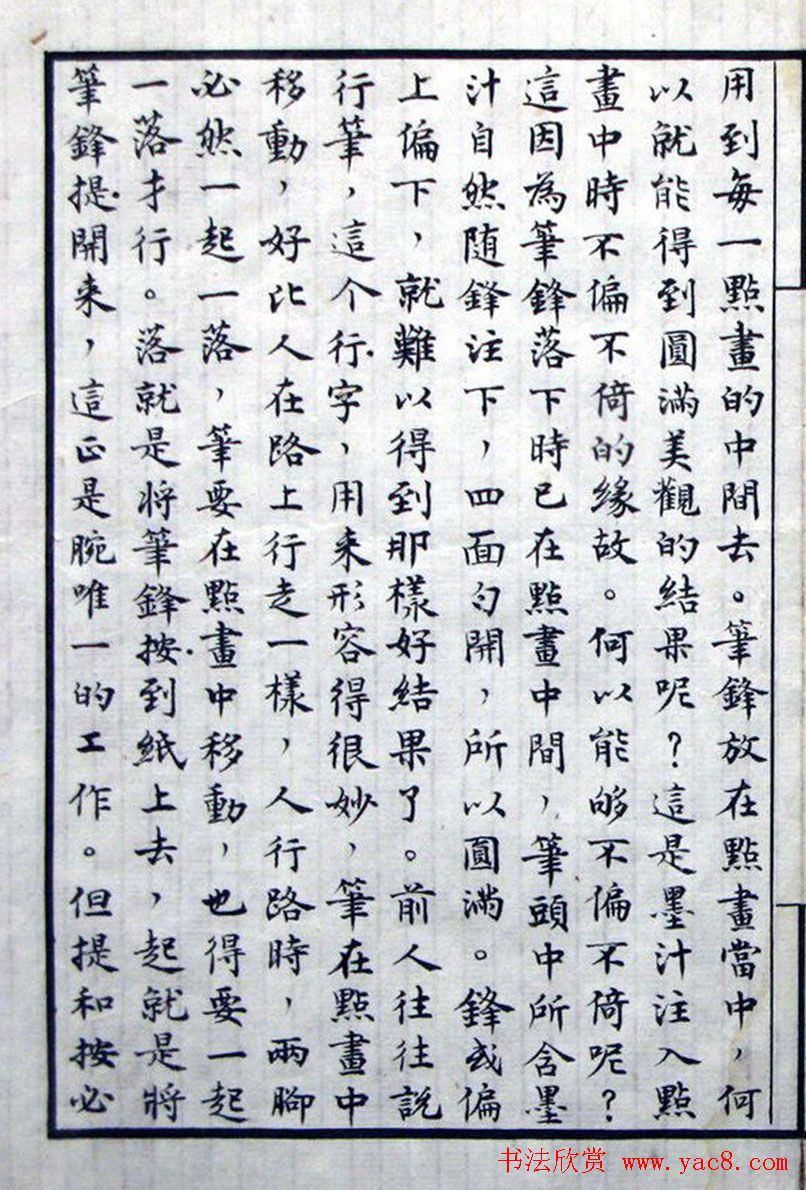 用到每一點畫的中間去。筆鋒放在點畫當中，何
以就能得到圓滿美觀的結果呢？這是墨汁注入點
畫中時不偏不倚的緣故。何以能够不偏不倚呢？
這因為筆鋒落下時已在點畫中間，筆頭中所含墨
汁自然随鋒注下，四面勻開，所以圓滿。鋒或偏
上偏下，就難以得到那樣好結果了。前人往往說
行筆，這个行字，用来形容得很妙，筆在點畫中
移動，好比人在路上行走一樣，人行路時，兩腳
必然一起一落，筆要在點畫中移動，也得要一起
一落才行。落就是將筆鋒按到紙上去，起就是將
筆鋒提開来，這正是腕唯一的工作。但提和按必
书法欣赏 www.yac8.com